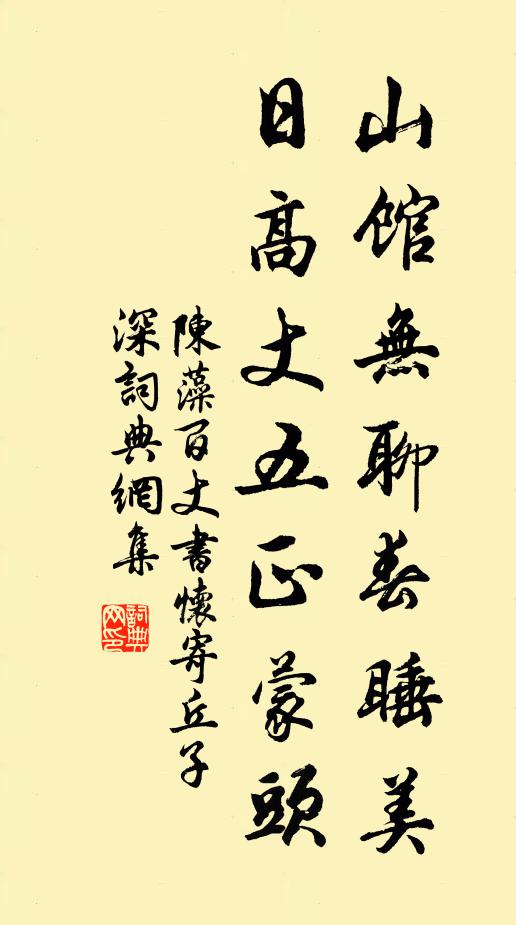 山館無聊春睡美
日高丈五正蒙頭
陳藻百丈書懷寄丘子
深詞典網集
詞典
网印